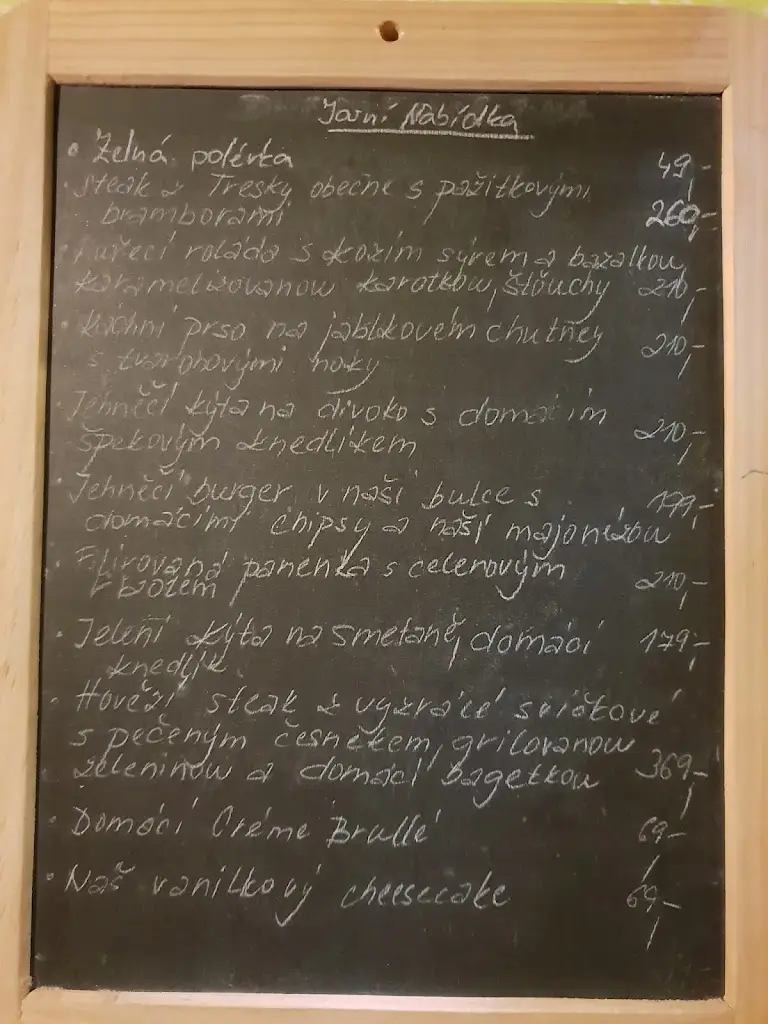 Jarní Nabídka
• Zelná polévka 49,-
• Steak z Tresky obecné s pažitkovými
bramborami 260,-
• Kuřecí roláda s kozím sýrem a bazalkou,
karamelizovanou karotkou, šťouchy 210,-
• Kachní prso na jablkovém chutney
s tvarohovými noky 210,-
• Jehněčí kýta na divoko s domácím
špekovým knedlíkem 210,-
• Jehněčí burger v naší bulce s 199,-
domácími chipsy a naší majonézou
• Filírovaná panenka s celerovým
210,-
• Jelení kýta na smetaně, domácí 179,-
knedlík
• Hovězí steak z vyzrálé svíčkové
s pečeným česnekem, grilovanou
zeleninou a domácí bagetkou 369,-
• Domácí Créme Brullé 69,-
• Náš vanilkový cheesecake 69,-